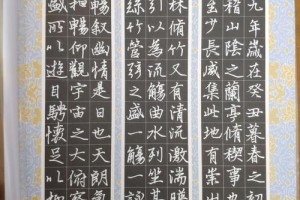 九年歲在癸丑暮春之初
稽山陰之蘭亭脩稧事也
少長咸集此地有崇
林脩竹又有清流激湍
引以為流觴曲水列坐其
絲竹管絃之盛一觴一詠
暢敘幽情是日也天朗氣
暢仰觀宇宙之大俯察
盛所以遊目騁懷足以